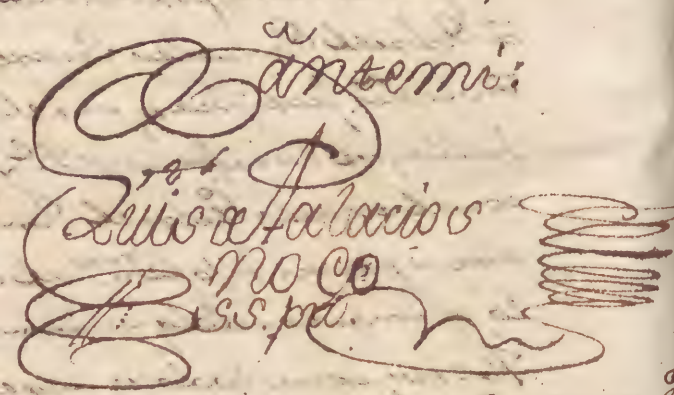 antemi:
Luis de Palacios
no co
s.s. pu.